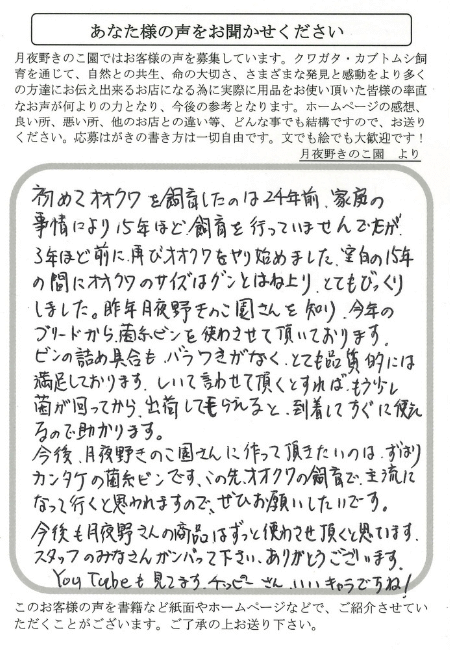 あなた様の声をお聞かせください
月夜野きのこ園ではお客様の声を募集しています。クワガタ・カブトムシ飼
育を通じて、自然との共生、命の大切さ、さまざまな発見と感動をより多く
の方達にお伝え出来るお店になる為に実際に用品をお使い頂いた皆様の率直
なお声が何よりの力となり、今後の参考となります。ホームページの感想、
良い所、悪い所、他のお店との違い等、どんな事でも結構ですので、お送り
ください。応募はがきの書き方は一切自由です。文でも絵でも大歓迎です!
月夜野きのこ園 より
初めてオオクワを飼育したのは24年前、家庭の
事情により15年ほど飼育を行っていませんでたが、
3年ほど前に再びオオクワをやり始めました、空白の15年
の間にオオクワのサイズはグンとはね上り、とてもびっくり
しました。昨年月夜野きのこ園さんを知り、今年の
ブリードから、菌糸ビンを使わさせて頂いております。
ビンの詰め具合も、バラツキがなく、とても品質的には
満足しております、しいて言わせて頂くとすれば、もう少し
菌が回ってから、出荷してもらえると、到着してすぐに使え
るので助かります。
今後、月夜野きのこ園さんに作って頂きたいのは、ずばり
カンタケの菌糸ビンです、この先、オオクワの飼育で、主流に
なって行くと思われますので、ぜひお願いしたいです。
今後も月夜野さんの商品はずっと使わさせ頂くと思ています、
スタッフのみなさんガンバって下さい、ありがとうございます、
YouTubeも見てます、チッピーさん、いいキャラですね!
このお客様の声を書籍など紙面やホームページなどで、ご紹介させてい
ただくことがございます。ご了承の上お送り下さい。